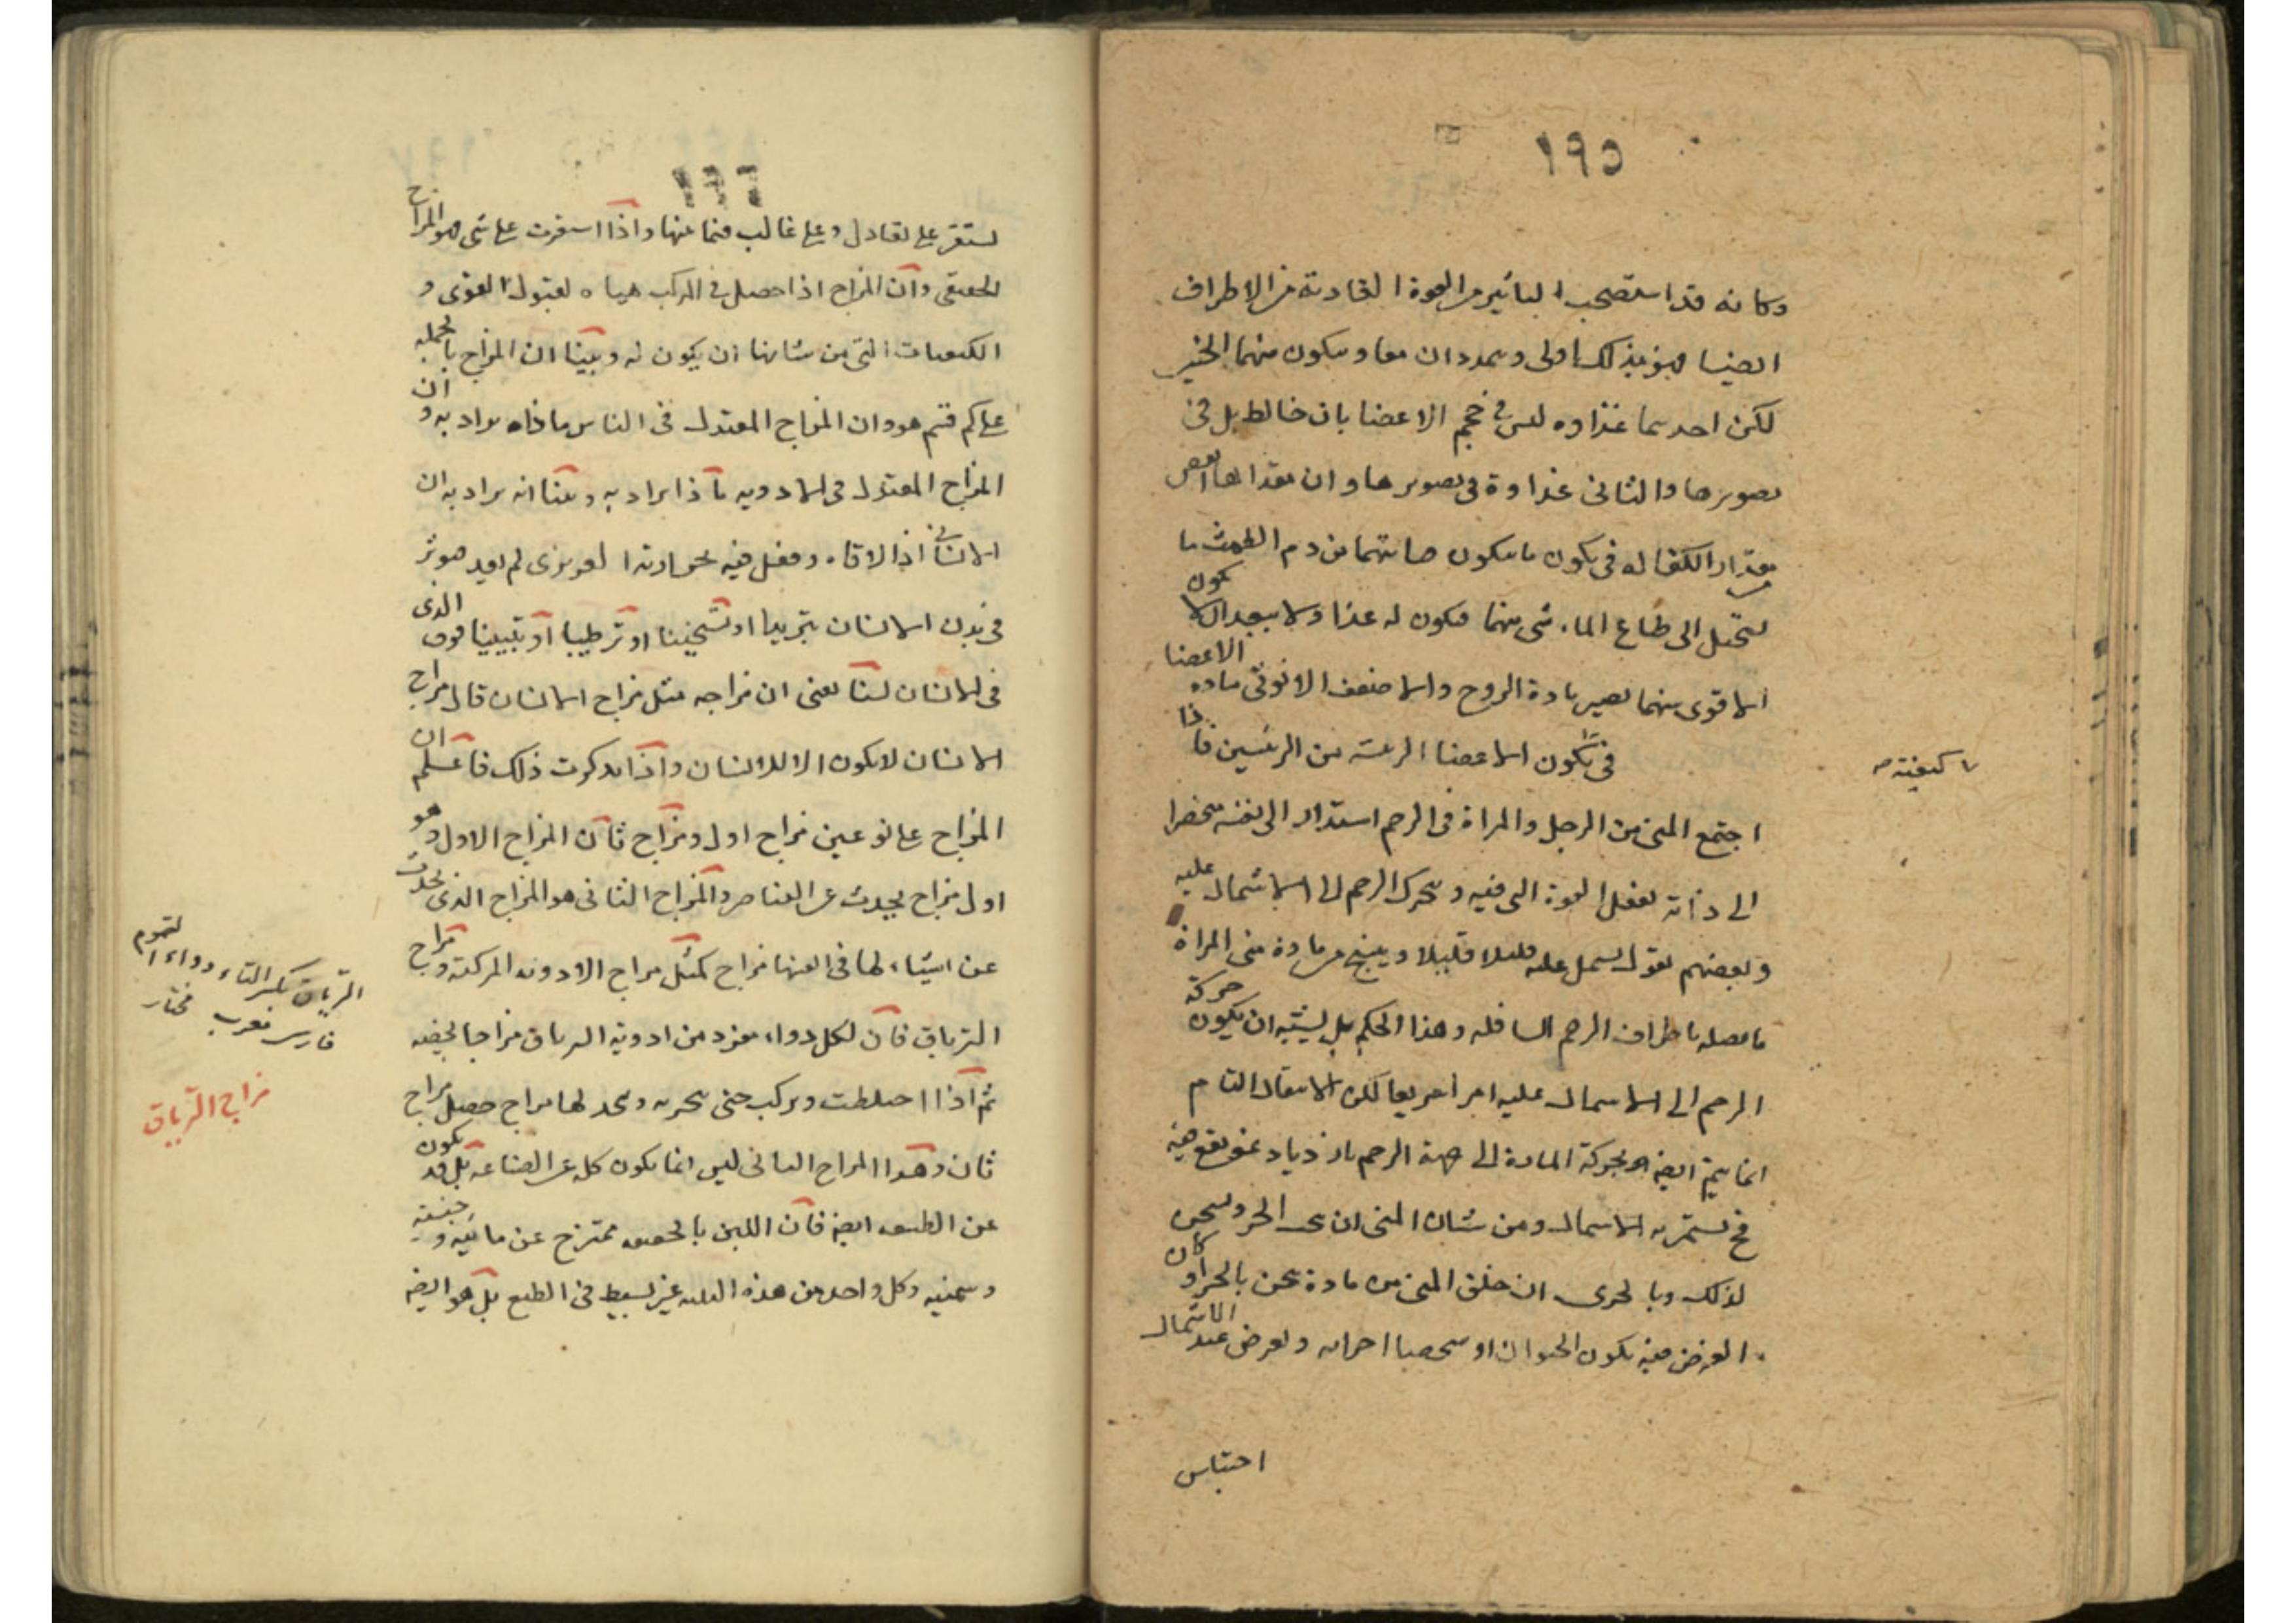 ١٩٥
وكانه قد استصحب التاثير من القوة الغاذية من الاطراف
ايضا فهو بذلك اولى ويمددان معا ويكون منهما الخير
لكن احدهما غذاوه ليس فى حجم الاعضا بان خالط بل فى
تصويرها والثانى غذاوة فى تصويرها وان
فى يكون ما يكون من دم الطمث ما
يستحيل الى طباع الماء شى منهما فيكون له غذا ولا يبعد ان يكون
الاقوى منهما يصير مادة الروح والاضعف الانوثى مادة الاعضا
فى تكون الاعضا الرئيسة من الرئيسين فاذا
كيفية
اجتمع المنى من الرجل والمراة فى الرحم استدار الى نفسه منحصرا
الى ذاته بفعل القوة التى فيه وتحرك الرحم الى الاشتمال عليه
وبعضهم يقول يشمل عليه قليلا قليلا وينبع من مادة منى المراة
ما يصله باطراف الرحم السافلة وهذا الحكم بل يشبه ان يكون حركة
الرحم الى الاشتمال عليه امرا سريعا لكن الاشتمال التام
انما يتم ايضا بحركة المادة الى جهة الرحم بازدياد يقع فيه
فح يستمر به الاشتمال ومن شان المنى ان الحر ويسخن
لذلك وبالحرى ان خلق المنى من مادة تسخن بالحر او كان
الغرض فيه تكون الحيوان او ويعرض عند الاشتمال
احتباس
١٩٦
يستقر على تعادل وعلى غالب فيما عنها واذا استقرت على شى فهو المزاج
الحقيقى وان المزاج اذا حصل فى المركب هياه لقبول القوى و
الكيفيات التى من شانها ان يكون له وبينا ان المزاج بالجملة
على كم قسم هو وان المزاج المعتدل فى الناس ماذا يراد به وان
المزاج المعتدل فى الادوية ماذا يراد به وبينا انه يراد به ان
الانسان اذا لاقاه وفعل فيه بحرارته الغريزى لم يعد فيوثر
فى بدن الانسان تبريدا او تسخينا او ترطيبا او تيبيسا فوق الذى
فى الانسان لسنا نعنى ان مزاجه مثل مزاج الانسان فان مزاج
الانسان لا يكون الا للانسان واذا تذكرت ذلك فاعلم ان
المزاج على نوعين مزاج اول ومزاج ثان المزاج الاول وهو
اول مزاج يحدث عن العناصر والمزاج الثانى هو المزاج الذى يحدث
عن اشياء لها فى انفسها مزاج كمثل مزاج الادوية المركبة ومزاج
الترياق فان لكل دواء مفرد من ادوية الترياق مزاجا يخصه
ثم اذا اختلطت وتركبت حتى وتتحد لها مزاج حصل مزاج
ثان وهذا المزاج الثانى ليس انما يكون كله عن الصناعة بل قد يكون
عن الطبيعة ايضا فان اللبن بالحقيقة ممتزج عن مائية وجبنية
وسمنية وكل واحد من هذه الثلثة غير بسيط فى الطبع بل هو ايضا
الترياق بكسر التاء دواء السموم
فارسى معرب مختار
مزاج الترياق